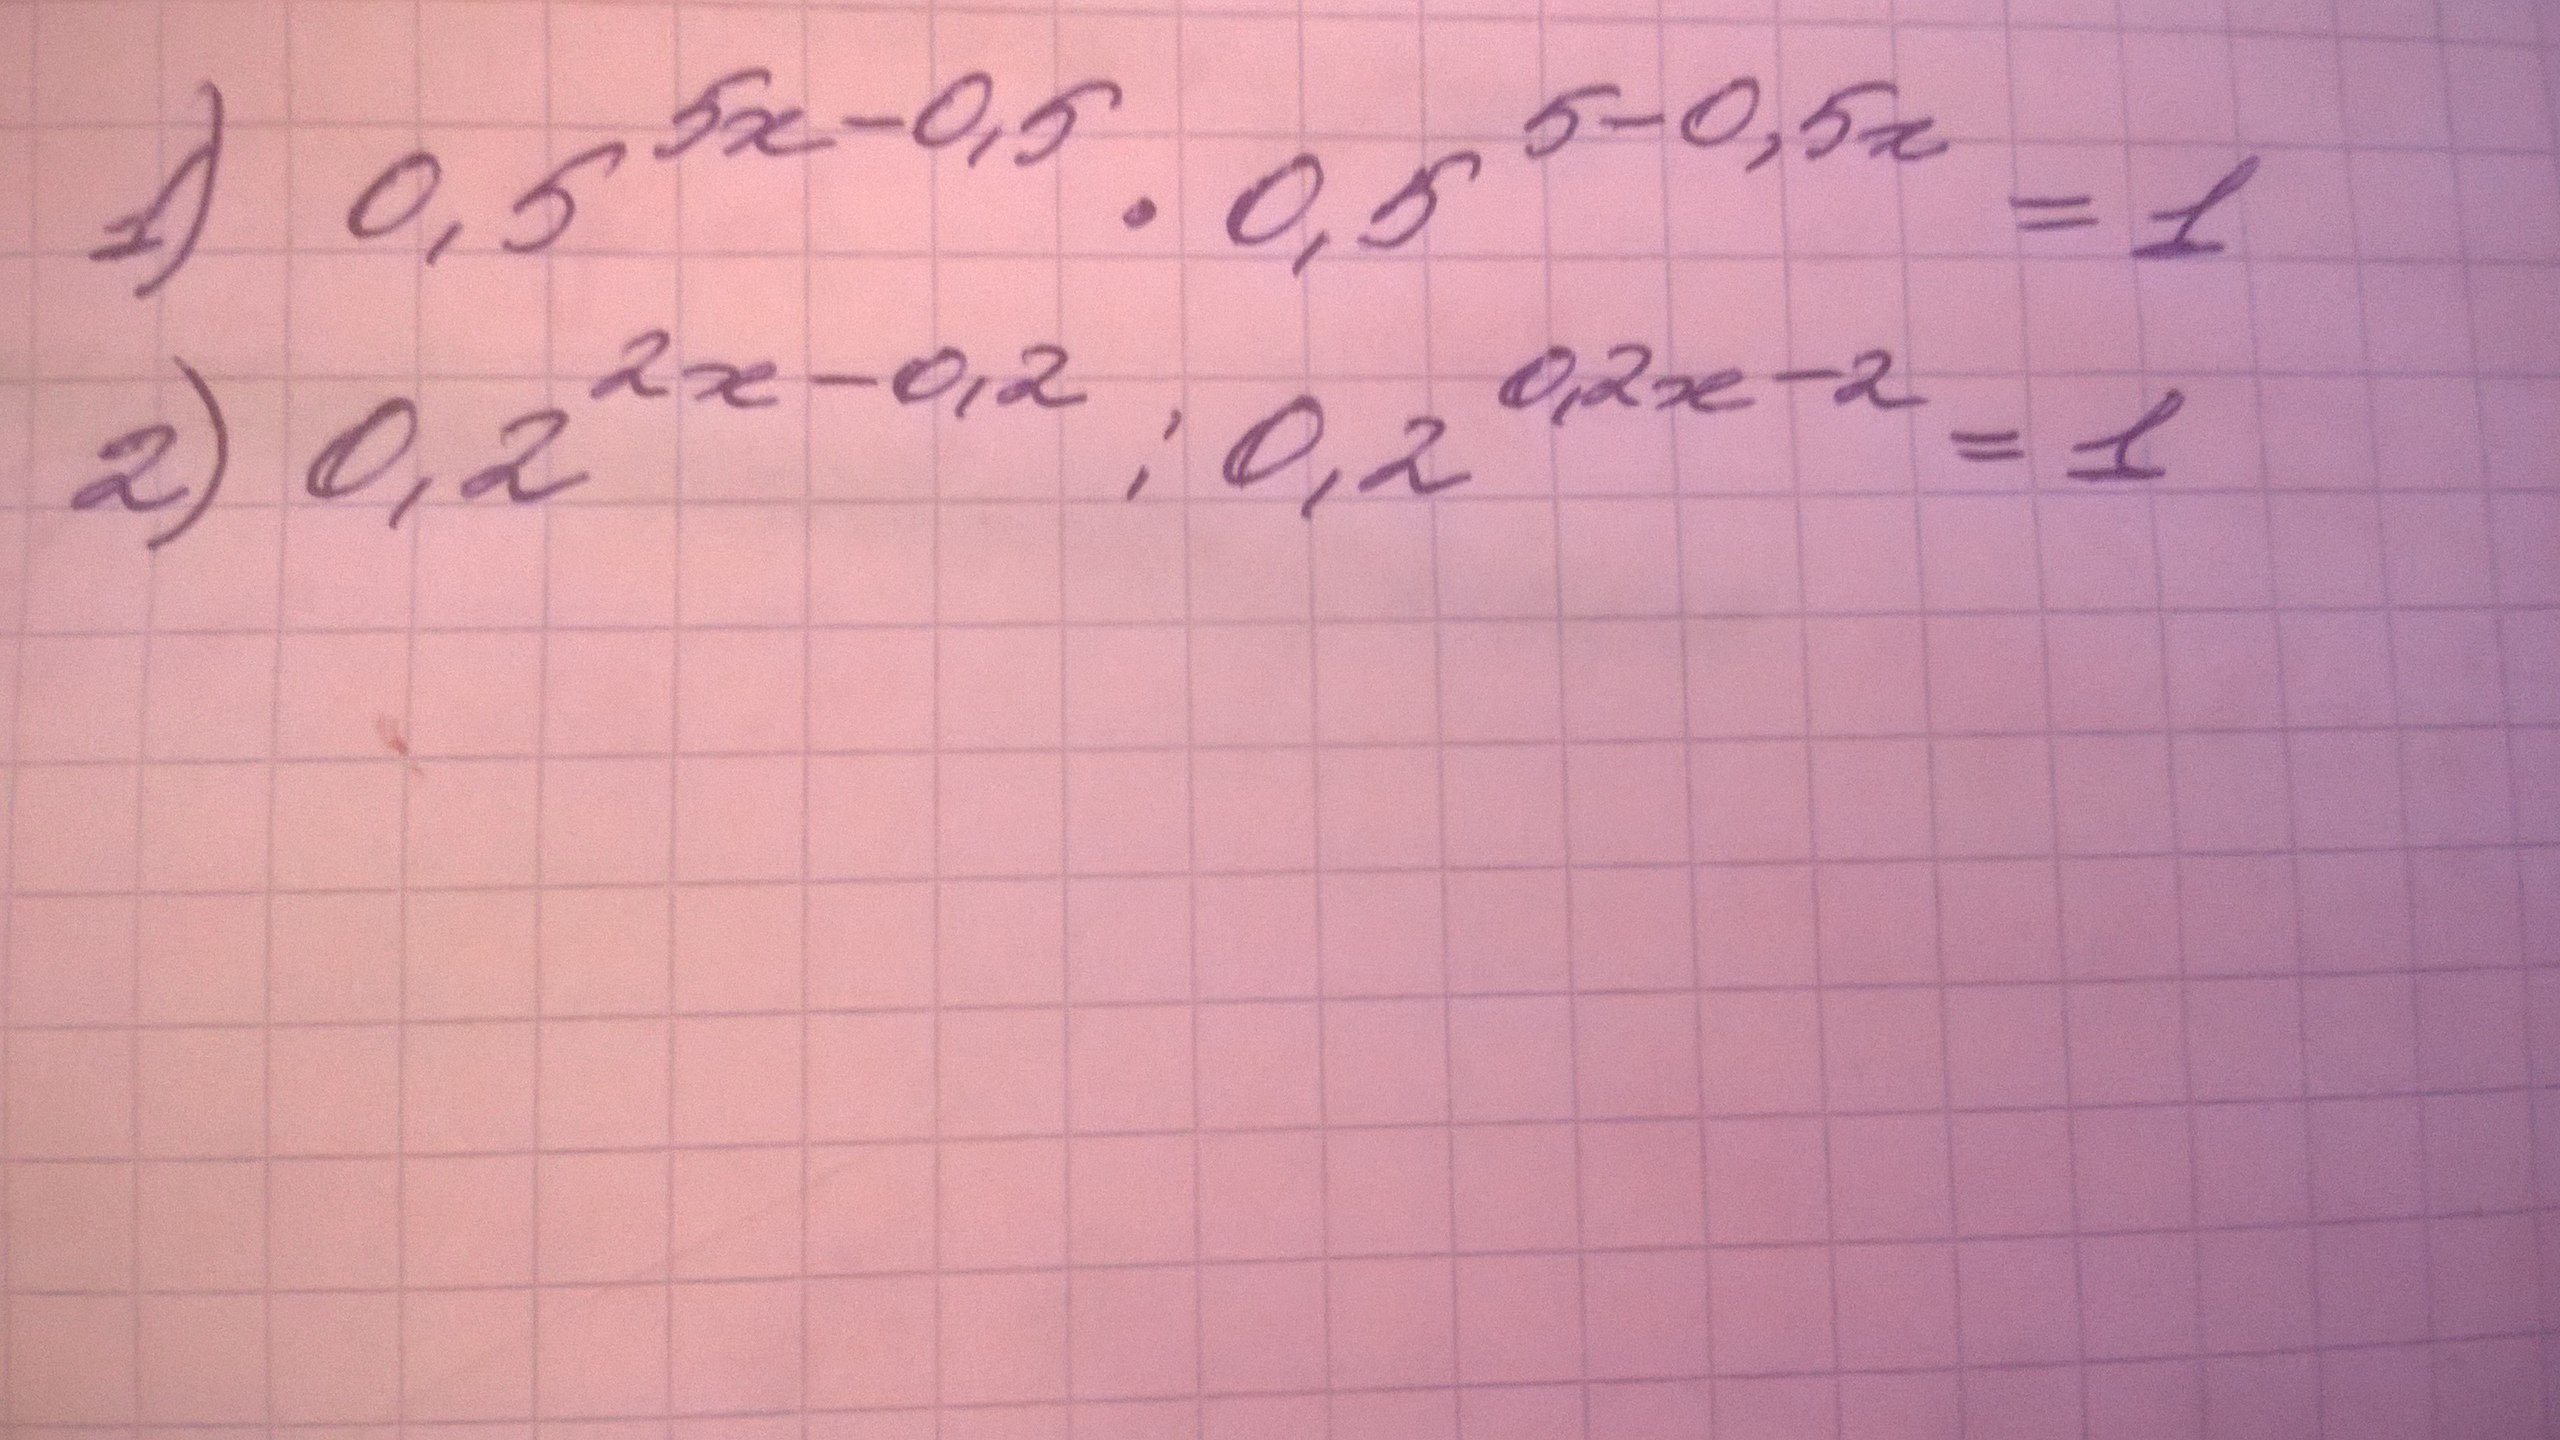 1) 0,5^{5x-0,5} · 0,5^{5-0,5x} = 1
2) 0,2^{2x-0,2} : 0,2^{0,2x-2} = 1